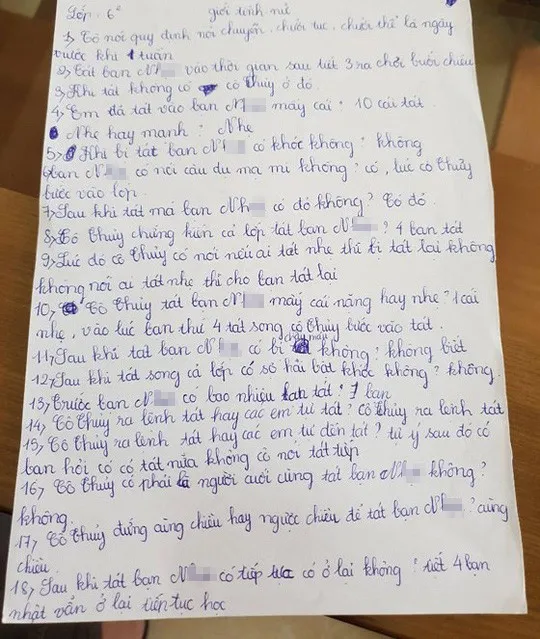 Lớp: 6² giới tính nữ
1, Cô nói quy định nói chuyện, chửi tục, chửi thề là ngày
trước khi 1 tuần
2, Tát bạn Nh vào thời gian sau tiết 3 ra chơi buổi chiều
3, Khi tát không có cô Thủy ở đó.
4, Em đã tát vào bạn N mấy cái? 10 cái tát
Nhẹ hay mạnh? Nhẹ
5, Khi bị tát bạn N có khóc không? không
6, bạn N có nói câu đu mạ mi không? có, lúc cô Thủy
bước vào lớp.
7, Sau khi tát má bạn Nh có đỏ không? Có đỏ.
8, Cô Thủy chứng kiến cả lớp tát bạn N? 4 bạn tát
9, Lúc đó cô Thủy có nói nếu ai tát nhẹ thì bị tát lại không
không nói ai tát nhẹ thì cho bạn tát lại
10, Cô Thủy tát bạn N mấy cái nặng hay nhẹ? 1 cái
nhẹ, vào lúc bạn thứ 4 tát song cô Thủy bước vào tát.
11, Sau khi tát bạn N có bị chảy máu không? không biết
12, Sau khi tát song cả lớp có sợ hãi bật khóc không? không.
13, trước bạn N có bao nhiêu bạn tát? 1 bạn
14, Cô Thủy ra lệnh tát hay các em tự tát? Cô Thủy ra lệnh tát
15, Cô Thủy ra lệnh tát hay các em tự đến tát? tự ý sau đó có
bạn hỏi cô có tát nữa không cô nói tát tiếp
16, Cô Thủy có phải là người cuối cùng tát bạn N không?
không.
17, Cô Thủy đứng cùng chiều hay ngược chiều để tát bạn N? cùng
chiều.
18, Sau khi tát bạn N có tiếp tục có ở lại không? tiết 4 bạn
nhật vẫn ở lại tiếp tục học